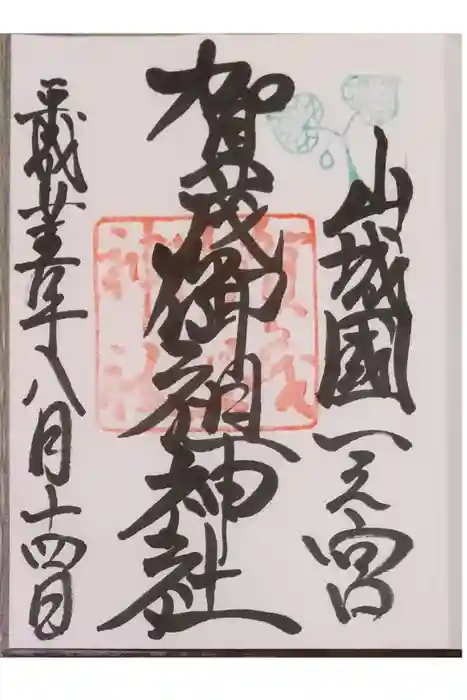 山城國一之宮
賀茂御祖神社
平成廿五年八月十四日